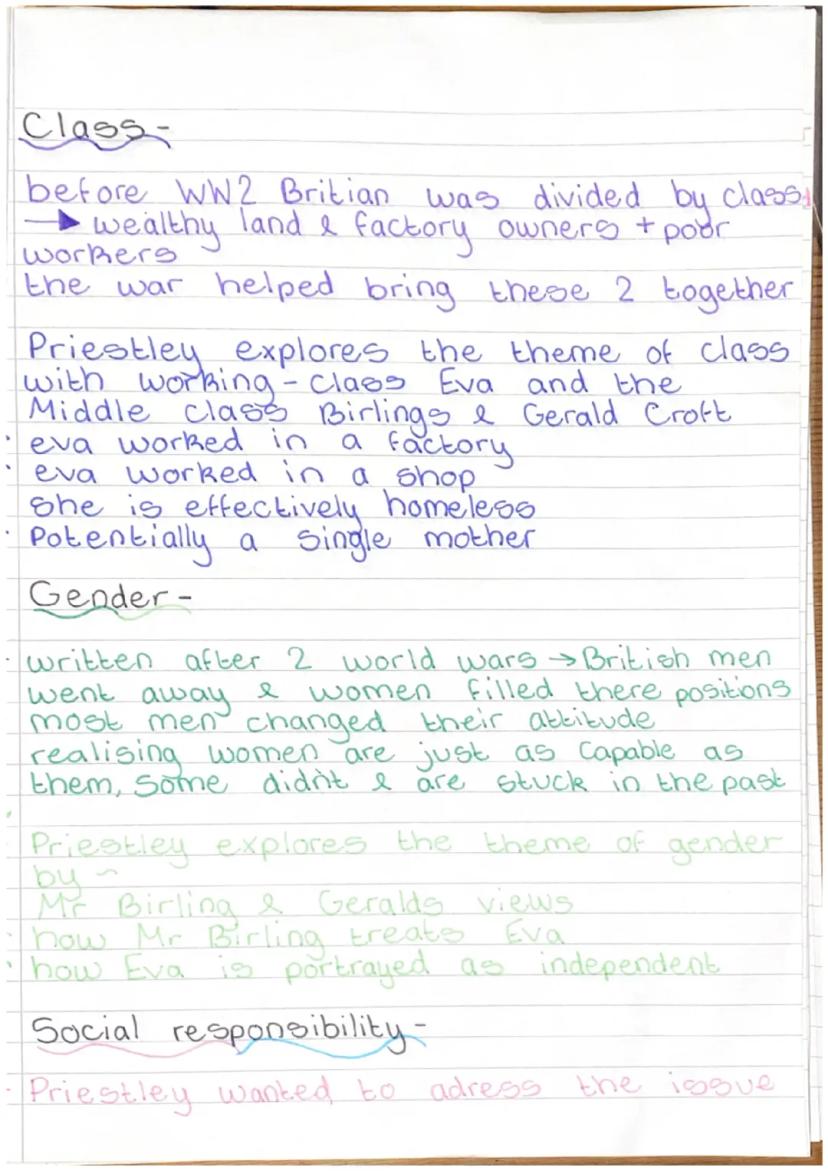 Class -
before WW2 Britian was divided by class
→ wealthy land & factory owners + poor
workers
the war helped bring these 2 together
Priestley explores the theme of class
with working-class Eva and the
Middle class Birlings & Gerald Croft
· eva worked in a factory
· eva worked in a shop
she is effectively homeless
· Potentially a single mother
Gender -
· written after 2 world wars → British men
went away & women filled there positions
most men changed their attitude
realising women are just as capable as
them, some didn't & are stuck in the past
Priestley explores the theme of gender
by ~
Mr Birling & Geralds views
· how Mr Birling treats Eva
· how Eva is portrayed as independent
Social responsibility -
· Priestley wanted to adress the issue